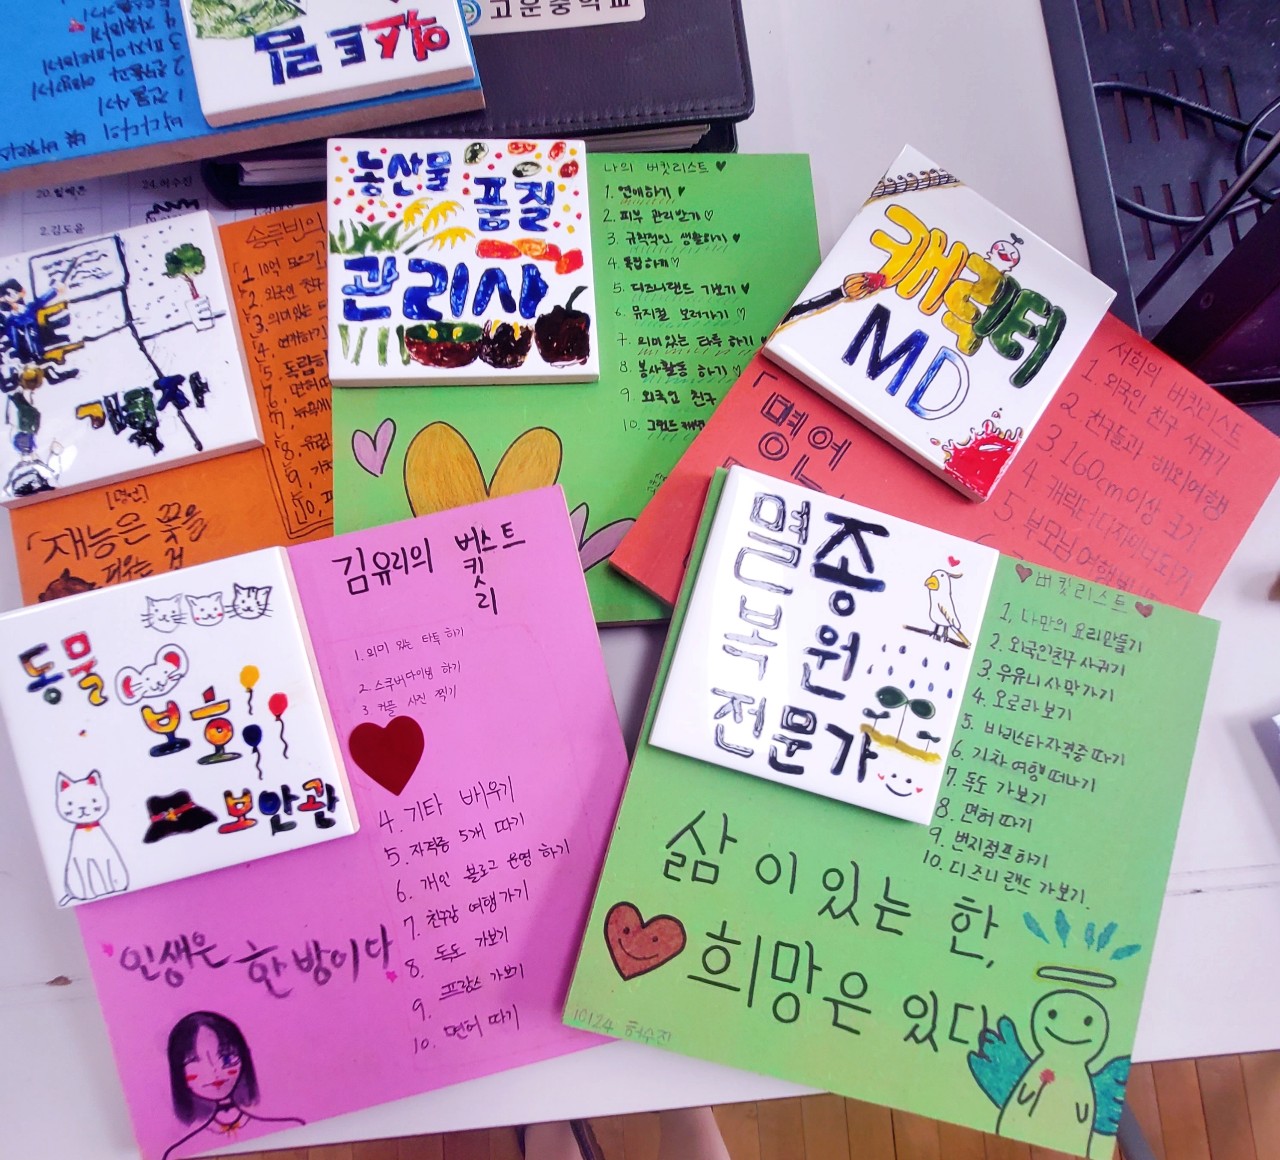 고운중학교
버킷리스트
1. 건물 사기
2. 친구들과 여행가기
3. 피자
농산물
품질
관리사
나의 버킷리스트 ♥
1. 연애하기 ♥
2. 피부 관리받기 ♡
3. 규칙적인 생활하기 ♥
4. 독립하기 ♡
5. 디즈니랜드 가보기 ♥
6. 뮤지컬 보러가기 ♡
7. 의미있는 타투 하기
8. 봉사활동 하기 ♡
9. 외국인 친구
10. 그랜드캐년
캐릭터
MD
서희의 버킷리스트
1. 외국인 친구 사귀기
2. 친구들과 해외여행
3. 160cm이상 크기
4. 캐릭터디자이너 되기
5. 부모님 여행
「명언
2. 김도윤
개발자
송루빈의
1. 10억 모으기
2. 외국인 친구
3. 의미있는
4. 연애하기
5. 독립
6. 면허따기
8. 유럽
[명언]
「재능은 꽃을
피우는 것
동물
보호
보안관
김유리의 버스트
킷
리
1. 의미 있는 타투 하기
2. 스쿠버다이빙 하기
3. 커플 사진 찍기
4. 기타 배우기
5. 자격증 5개 따기
6. 개인 블로그 운영 하기
7. 친구랑 여행가기
8. 독도 가보기
9. 프랑스 가보기
10. 면허 따기
인생은 한방이다
멸종
복원
전문가
♥버킷리스트♥
1. 나만의 요리만들기
2. 외국인친구 사귀기
3. 우유니사막가기
4. 오로라보기
5. 바리스타자격증따기
6. 기차여행 떠나기
7. 독도 가보기
8. 면허 따기
9. 번지점프하기
10. 디즈니랜드 가보기.
삶이 있는 한,
희망은 있다
10124 허수진